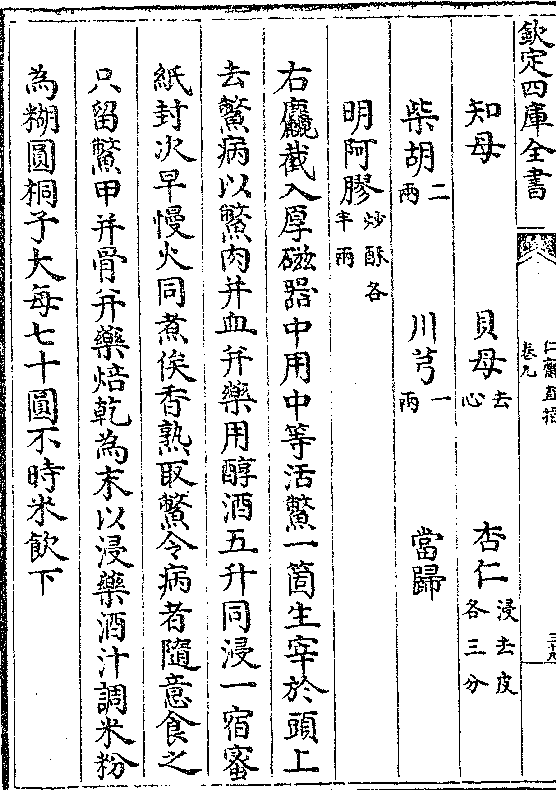 欽定四庫全書
仁齋直指
卷九
知母 貝母去心 杏仁浸去皮各三分
柴胡二兩 川芎一兩 當歸
明阿膠炒酥各半兩
右麤截入厚磁器中用中等活鱉一箇生宰於頭上
去鱉病以鱉肉并血并藥用醇酒五升同浸一宿蜜
紙封次早慢火同煮俟香熟取鱉令病者隨意食之
只留鱉甲并骨并藥焙乾為末以浸藥酒汁調米粉
為糊圓桐子大每七十圓不時米飲下